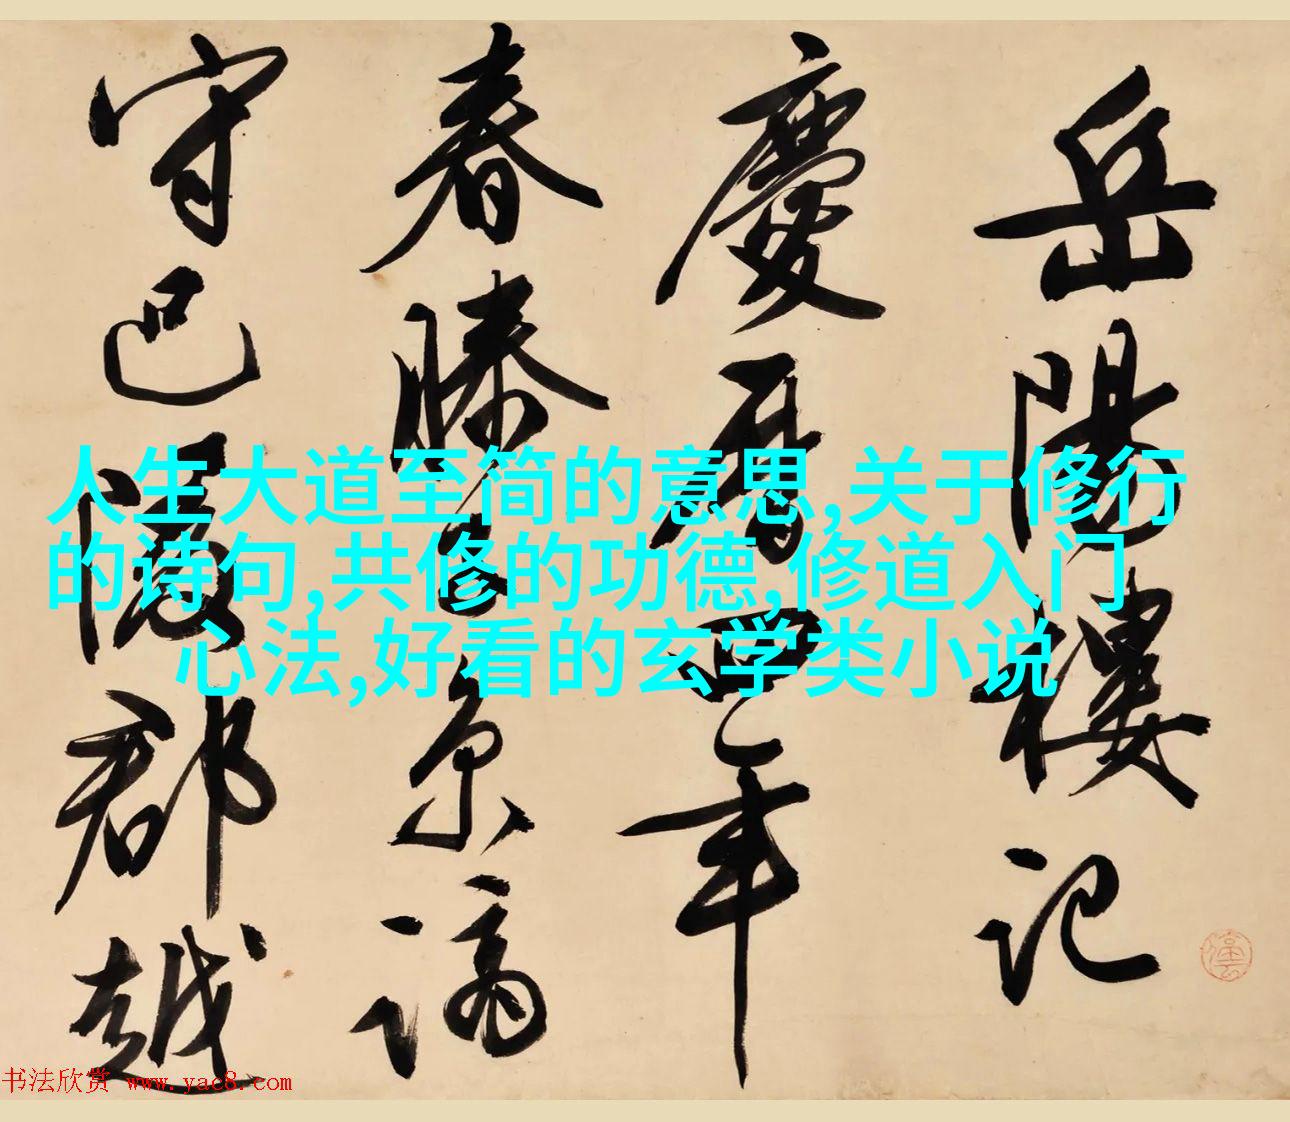 岳陽樓記
慶曆四年
春滕子京謫
守巴陵郡越
人生大道至简的意思,关于修行
的诗句,共修的功德,修道入门
心法,好看的玄学类小说
书法欣赏 www.yac8.com